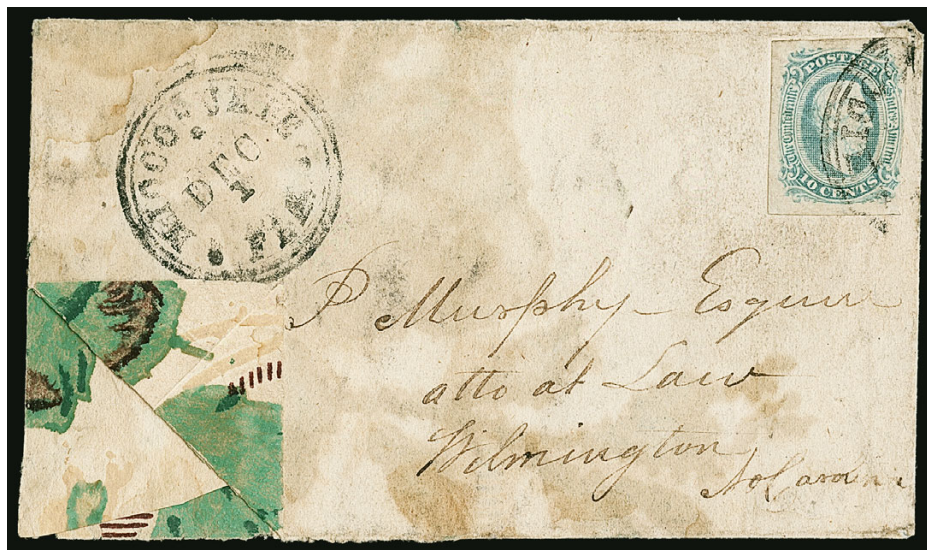 MICCOSUKEE
DEC
1
FLA.
POSTAGE
The Confederate States of America
10 CENTS
P Murphy Esquire
atto at Law
Wilmington
No Carolina